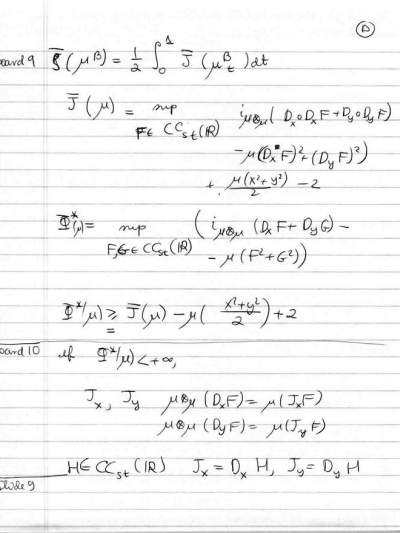 D
board 9 ξ̄(μ^B) = 1/2 ∫_0^1 J̄(μ_t^B) dt
J̄(μ) = sup_{F∈CC_st(ℝ)} i_{μ⊗μ}(D_x∘D_xF + D_y∘D_yF)
-μ(D_xF)²+(D_yF)²)
+ μ(x²+y²)/2 - 2
Φ̄*(μ) = sup_{F,G∈CC_st(ℝ)} ( i_{μ⊗μ}(D_xF + D_yG) -
- μ(F²+G²))
Φ̄*(μ) ≥ J̄(μ) - μ((x²+y²)/2) + 2
=
board 10 if Φ*(μ) < +∞,
J_x, J_y μ⊗μ(D_xF) = μ(J_xF)
μ⊗μ(D_yF) = μ(J_yF)
H∈CC_st(ℝ) J_x = D_x H, J_y = D_y H
slide 9